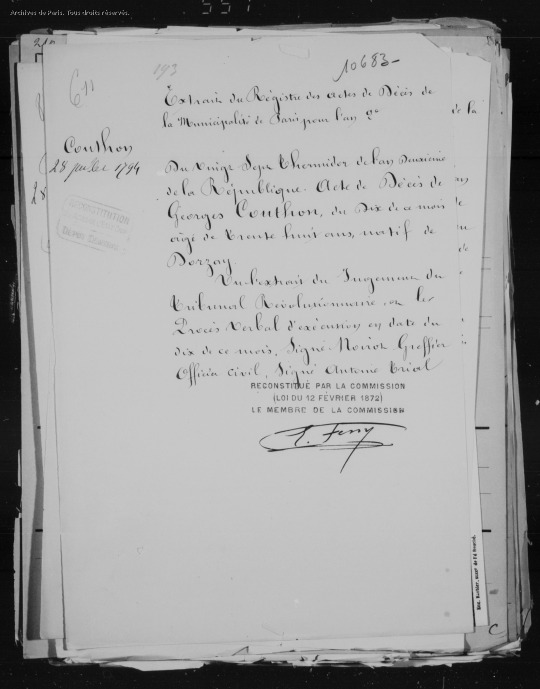 Archives de Paris. Tous droits réservés.
193
10683
611
Extrait du Régistre des actes de Décès de
la Municipalité de Paris pour l'an 2e
Couthon
28 juillet 1794
Du Vingt Sept Thermidor de l'an Deuxième
de la République. Acte de Décès de
Georges Couthon, du Dix de ce mois
âgé de trente huit ans, natif de
Dorzay.
Vu l'extrait du Jugement du
Tribunal Révolutionnaire et le
Procès Verbal d'exécution en date du
dix de ce mois, Signé Neirot Greffier
Officier Civil, Signé Antoine Trial
RECONSTITUÉ PAR LA COMMISSION
(LOI DU 12 FÉVRIER 1872)
LE MEMBRE DE LA COMMISSION
de la